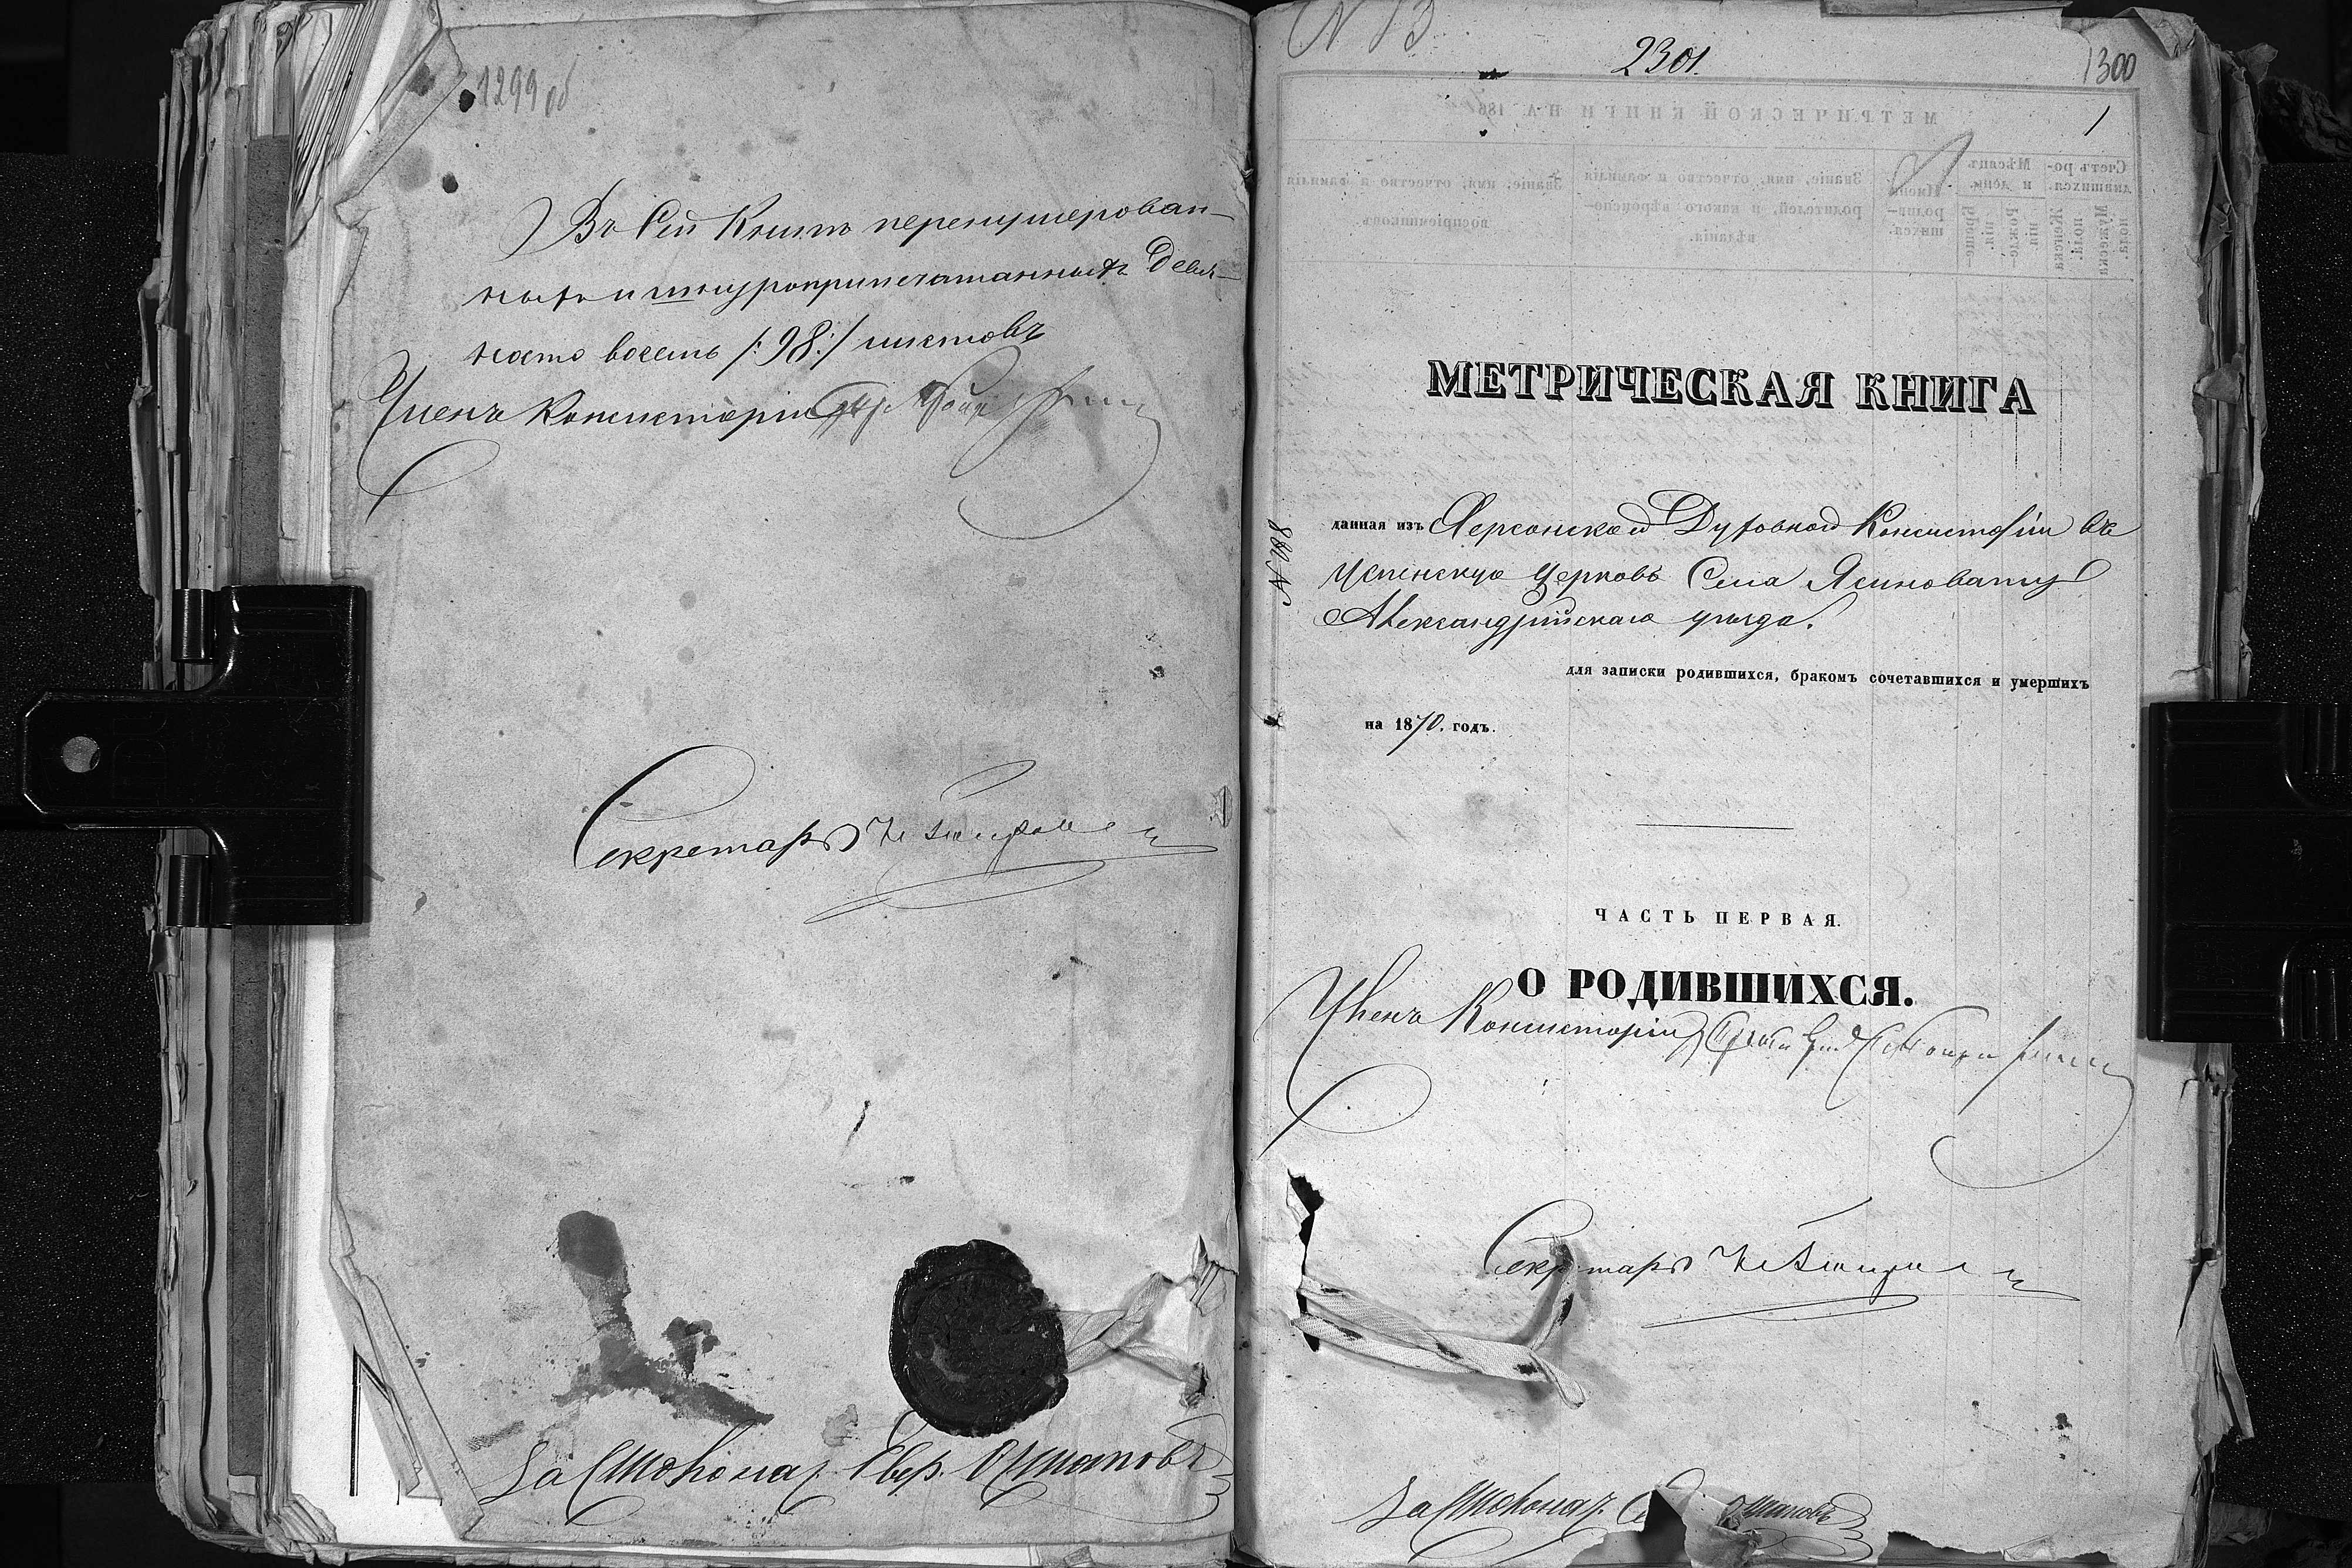 1299 об
Въ Сей Книгѣ перенумерован-
ныхъ и шнуроприпечатанныхъ девя-
носто восемь /:98:/ листовъ
Членъ Консисторіи
Секретарь
За Столонач.
N 13
2301.
1300
1
МЕТРИЧЕСКОЙ КНИГИ НА 186
Счетъ ро-
дившихся.
Мѣсяцъ
и день.
Имена
родив-
шихся.
Званіе, имя, отчество и фамилія
родителей, и какого вѣроиспо-
вѣданія.
Званіе, имя, отчество и фамилія
воспріемниковъ
Мужеска
пола.
Женска
пола.
Рожде-
нія.
Креще-
нія.
МЕТРИЧЕСКАЯ КНИГА
данная изъ Херсонской Духовной Консисторіи въ
Успенскую Церковь Села Ясиноватку
Александрійскаго уѣзда.
для записки родившихся, бракомъ сочетавшихся и умершихъ
на 1870. годъ.
ЧАСТЬ ПЕРВАЯ.
О РОДИВШИХСЯ.
Членъ Консисторіи
Секретарь
За Столонач.